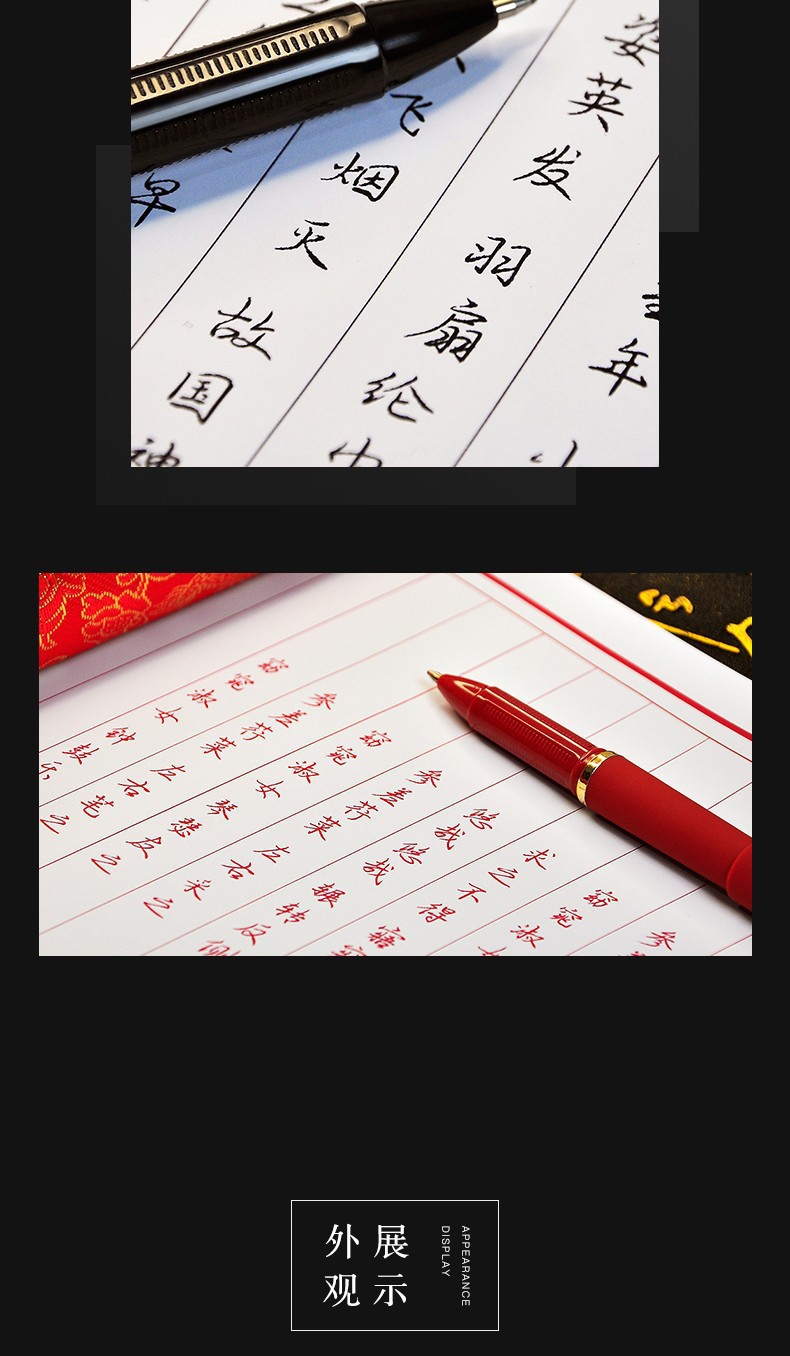 年
姿英发羽扇纶巾
飞烟灭故国神
早
参
窈窕淑女
求之不得寤
悠哉悠哉辗转反侧
参差荇菜左右采之
窈窕淑女琴瑟友之
参差荇菜左右笔之
窈窕淑女钟鼓乐
外观
展示
APPEARANCE
DISPLAY